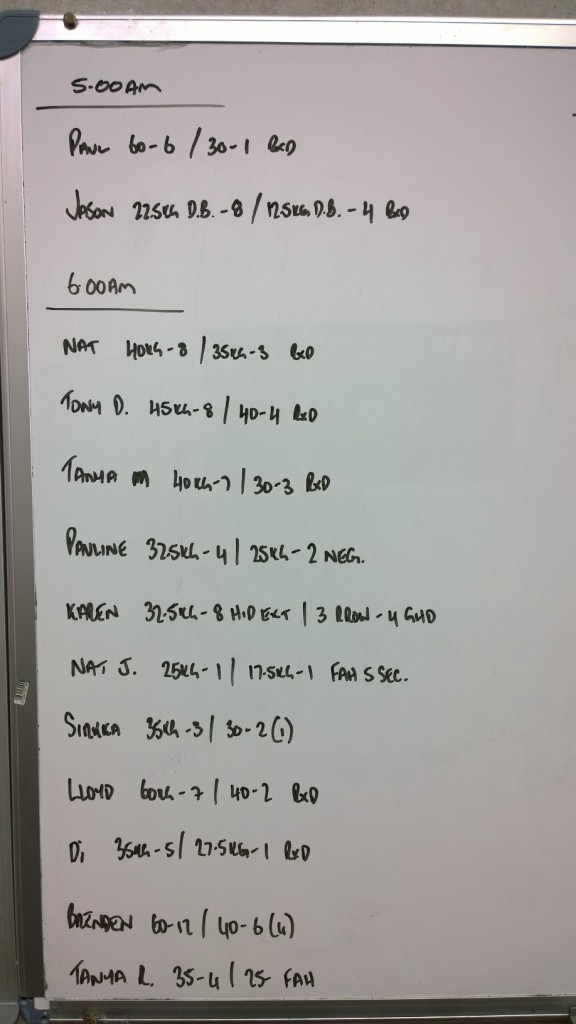 5.00AM
PAUL 60-6 / 30-1 RxD
JASON 22.5KG D.B. - 8 / 12.5KG D.B. - 4 RxD
6.00AM
NAT 40KG - 8 / 35KG - 3 RxD
TONY D. 45KG - 8 / 40-4 RxD
TANYA M 40KG - 7 / 30-3 RxD
PAULINE 32.5KG - 4 / 25KG - 2 NEG.
KAREN 32.5KG - 8 HIP EXT / 3 RROW - 4 GHD
NAT J. 25KG - 1 / 17.5KG - 1 FAH 5 SEC.
35KG - 3 / 30-2 (1)
LLOYD 60KG - 7 / 40-2 RxD
Di 35KG - 5 / 27.5KG - 1 RxD
BRENDEN 60-12 / 40-6 (4)
TANYA R. 35-4 / 25- FAH